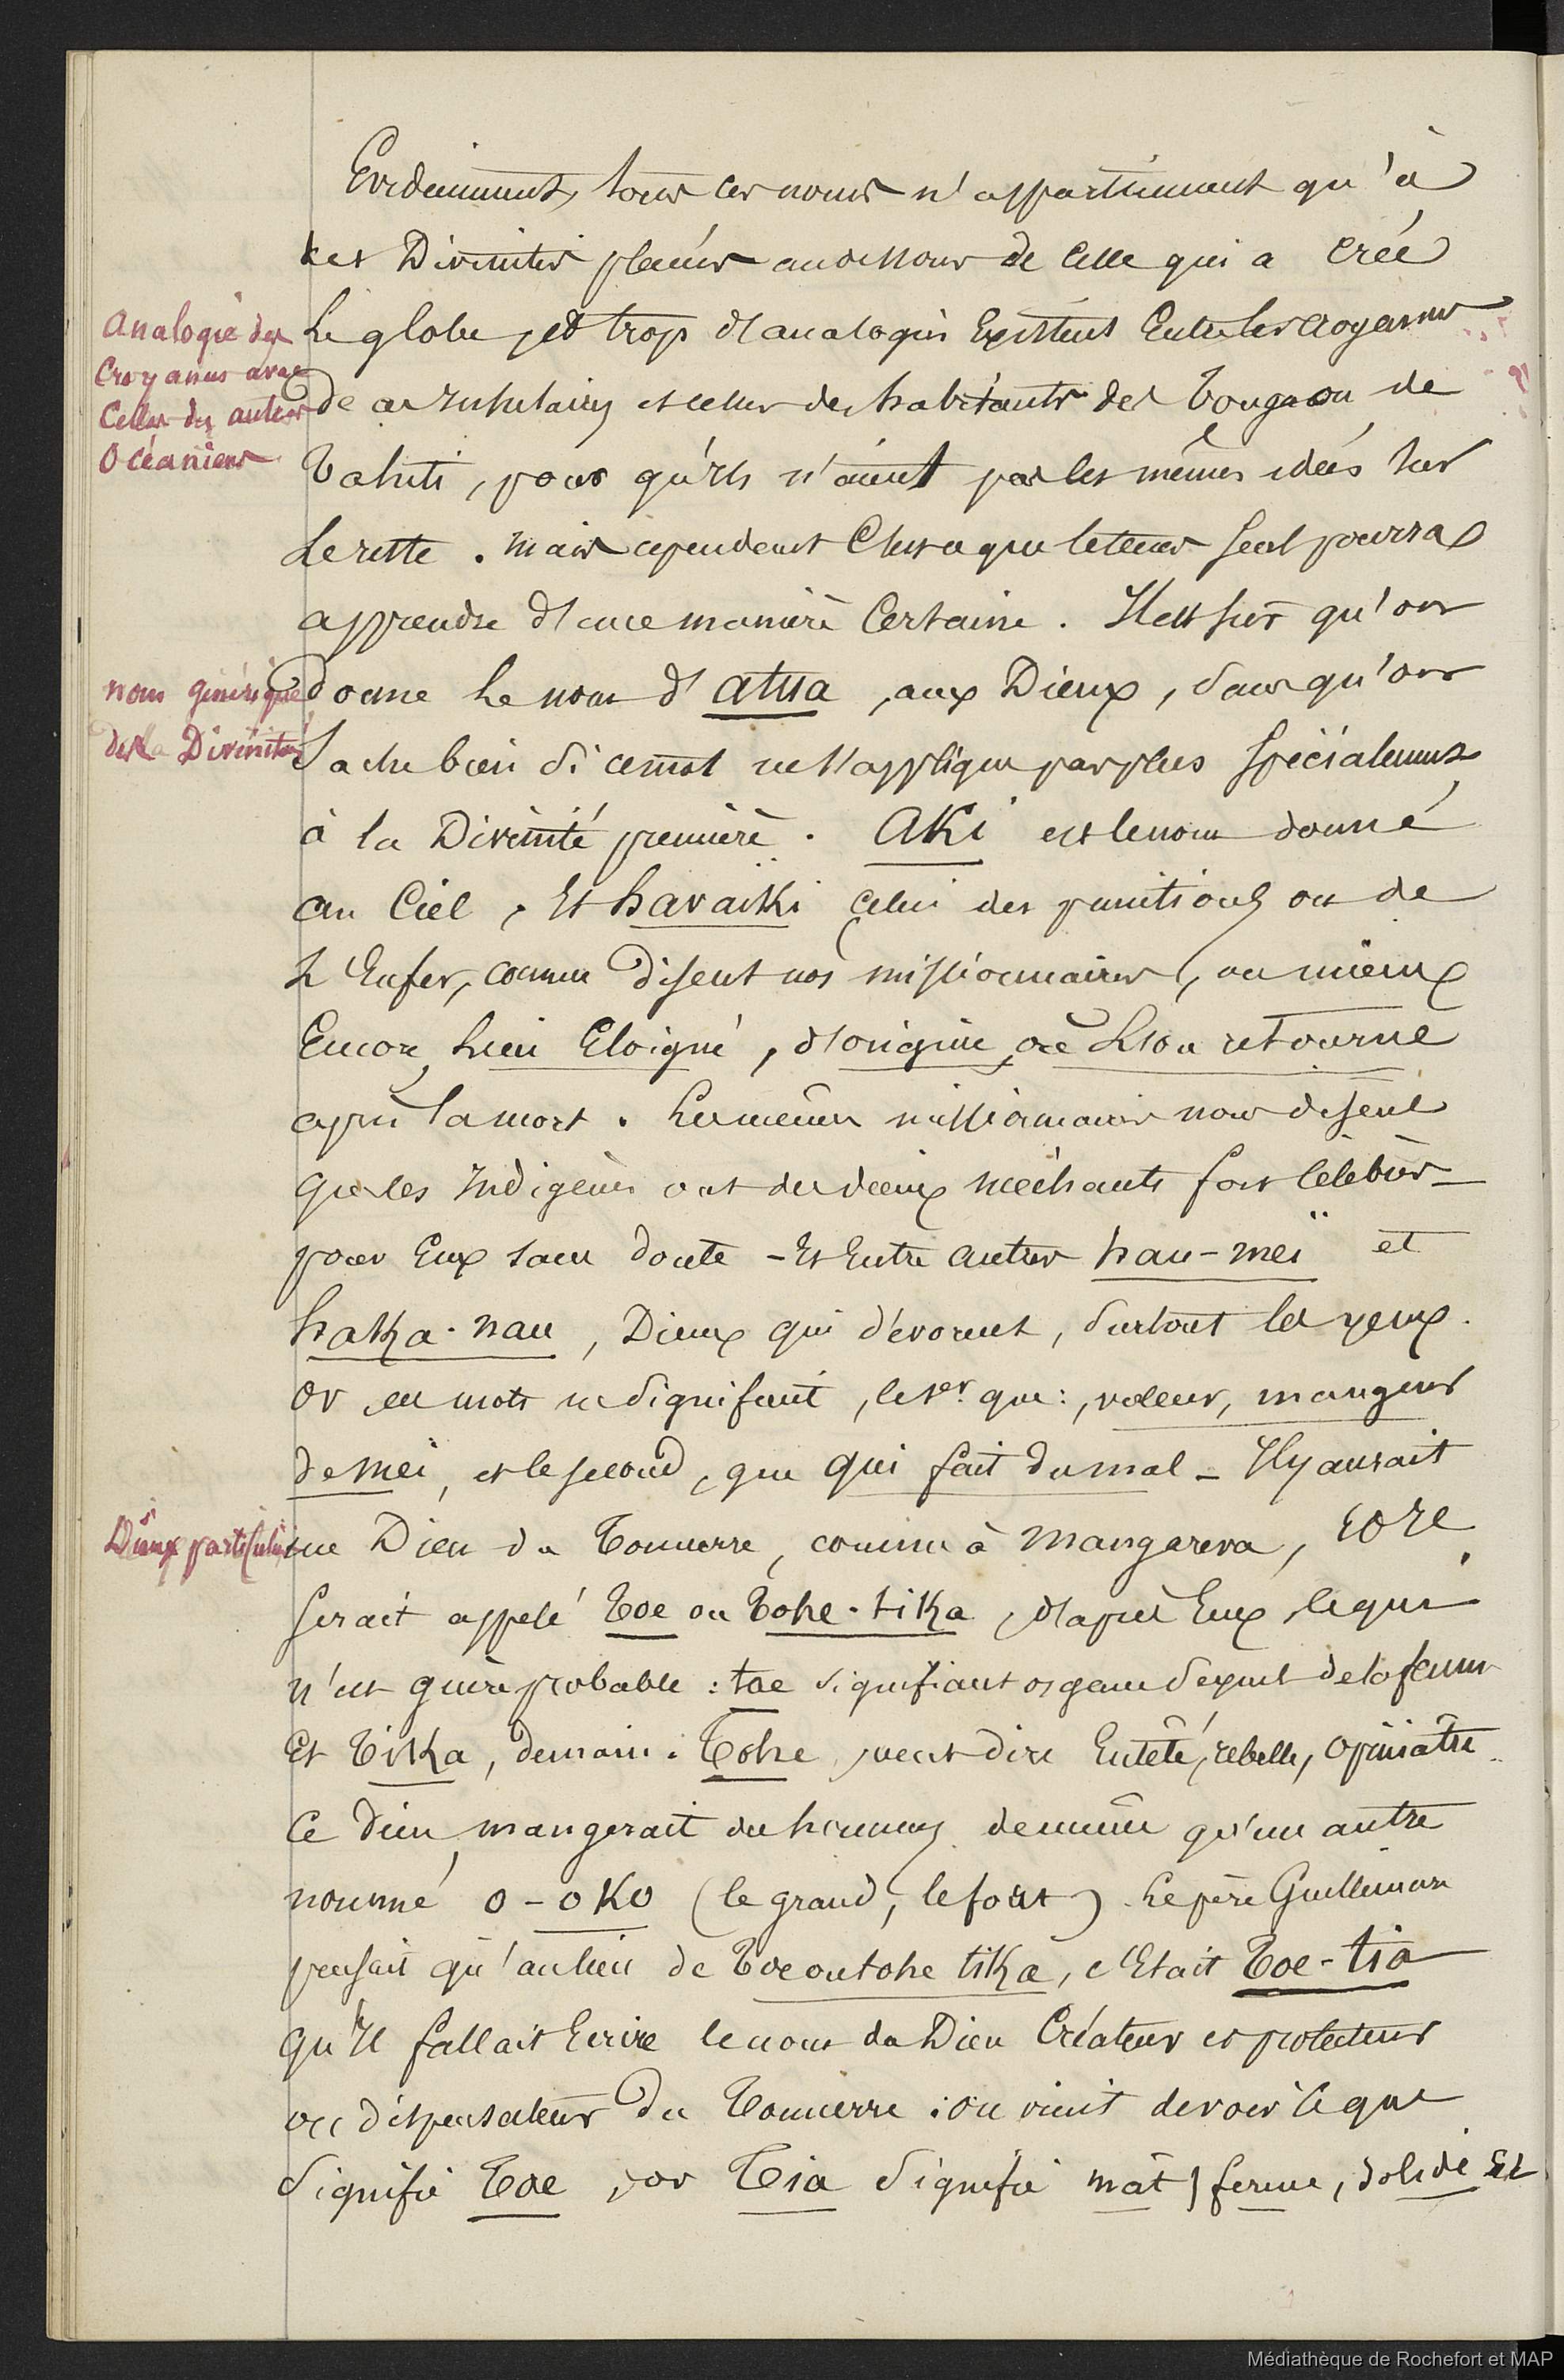 Evidemment, tous ces noms n'appartiennent qu'à
des Divinités placées audessous de Celle qui a créé
Analogie des
Croyances avec
Celles des autres
Océaniens
le globe, et trop d'analogies Existent Entre les croyances
de ces Insulaires et celles des habitants des Tonga ou de
Tahiti, pour qu'ils n'aient pas les mêmes idées sur
le reste. mais cependant C'est ce que le tems seul pourra
apprendre d'une manière Certaine. Il est sûr qu'on
nom générique
des Divinités
donne le nom d'atua, aux Dieux, sans qu'on
sache bien si ce mot ne s'applique pas plus spécialement
à la Divinité première. Aki est le nom donné
au Ciel, Et havaiki celui des punitions ou de
L'Enfer, comme disent nos missionnaires, ou mieux
Encore, lieu Eloigné, d'origine, où L'on retourne
après la mort. Les mêmes missionnaires nous disent
que les Indigènes ont des dieux méchants fort célèbres
pour Eux sans doute - Et Entre autres hau-meï et
haka-nau, Dieux qui dévorent, surtout les yeux.
or ces mots ne signifient, le 1er. que:, voleur, mangeur
de mei, et le second, que qui fait du mal - Il y aurait
Dieux particuliers
un Dieu du Tonnerre, comme à Mangareva, Il
serait appelé Toe ou Tohe-tika, d'après Eux, ce qui
n'est guère probable: toe signifiant organe sexuel de la femme
Et Tika, demain. Tohe, veut dire Entêté, rebelle, opiniâtre.
Ce dieu mangerait des hommes de même qu'un autre
nommé o-oko (le grand, le fort). Le père Guillemar
pensait qu'au lieu de Toe ou tohe tika, c'Etait Toe-tia
qu'Il fallait Ecrire le nom du Dieu Créateur et protecteur
ou dispensateur du Tonnerre: on vient de voir ce que
signifie Toe, or Tia signifie mât, ferme, solide Et
Médiathèque de Rochefort et MAP